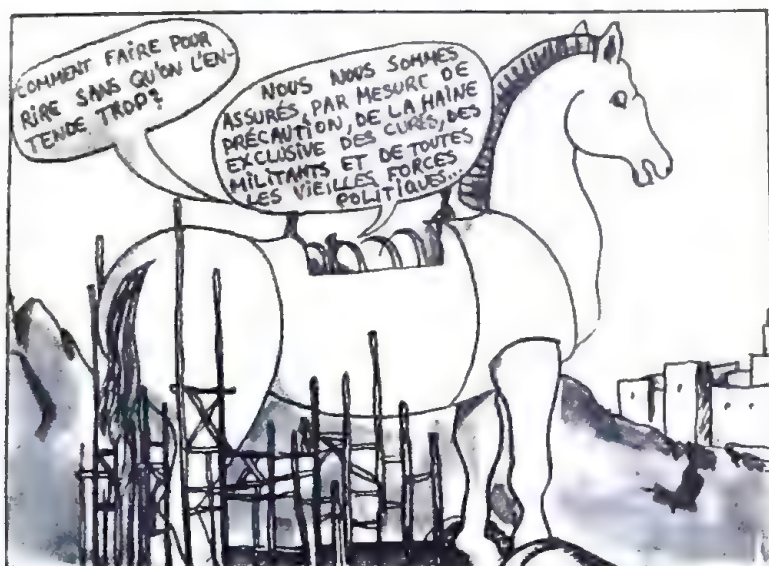 COMMENT FAIRE POUR
RIRE SANS QU'ON L'EN-
TENDE TROP?
NOUS NOUS SOMMES
ASSURÉS, PAR MESURE DE
PRÉCAUTION, DE LA HAINE
EXCLUSIVE DES CURÉS, DES
MILITANTS ET DE TOUTES
LES VIEILLES FORCES
POLITIQUES...